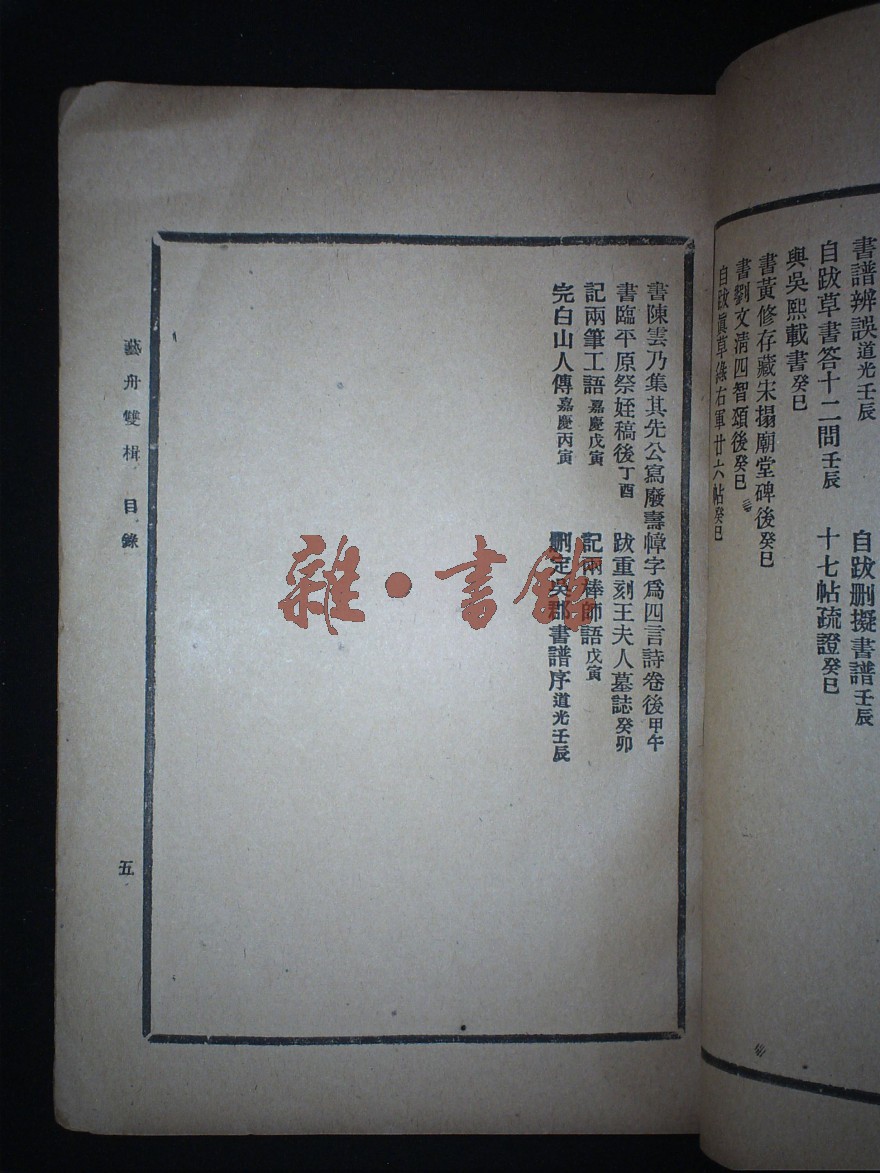 書譜辨誤道光壬辰 自跋刪擬書譜壬辰
自跋草書答十二問壬辰 十七帖疏證癸巳
與吳熙載書癸巳
書黃修存藏宋搨廟堂碑後癸巳
書劉文清四智頌後癸巳
自跋眞草錄右軍廿六帖癸巳
書陳雲乃集其先公寫廢壽幛字爲四言詩卷後甲午
書臨平原祭姪稿後丁酉 跋重刻王夫人墓誌癸卯
記兩筆工語嘉慶戊寅 記兩棒師語戊寅
完白山人傳嘉慶丙寅 刪定吳郡書譜序道光壬辰
藝舟雙楫 目錄
五
雜·書館